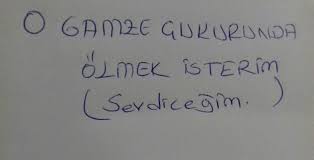 O GAMZE ÇUKURUNDA
ÖLMEK İSTERİM
(Sevdiceğim.)